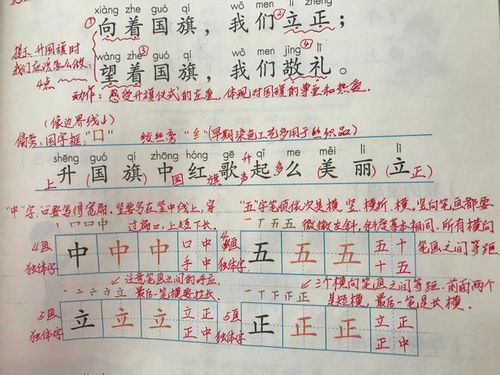 xiàng zhe guó qí wǒ men lì zhèng
①向着国旗，我们立正；
提示：升国旗时
我们应该怎么做
4点
wàng zhe guó qí wǒ men jìng lǐ
望着国旗，我们敬礼。
动作：感受升旗仪式的庄重，体现对国旗的尊重和热爱.
(像边界线)
偏旁：国字框："囗" 绞丝旁"纟"(早期染色工艺多用于丝织品)
shēng guó qí zhōng hóng gē qǐ me měi lì lì
上升 国 旗 中 国 红 旗 歌 声 升 起 多 么 (美 丽) 立(正)
"中"字，口要写得宽扁，竖要写在竖中线上，穿
过扁口，上短下长.
"五"字笔顺依次是横、竖、横折、横。竖向笔画都要
微微左斜，斜度基本相同，所有横向
笔画之间等距
丨 口 口 中
一 丁 五 五
4画 独体字 中 中 中 口中 手中
4画 独体字 五 五 五 五十 十五
注意笔画之间的呼应，
最后一笔横要拉长.
三个横向笔画之间等距，前面两个
是短横，最后一笔是长横.
5画 独体字 立 立 立 立正 立中
5画 独体字 正 正 正 立正 正中